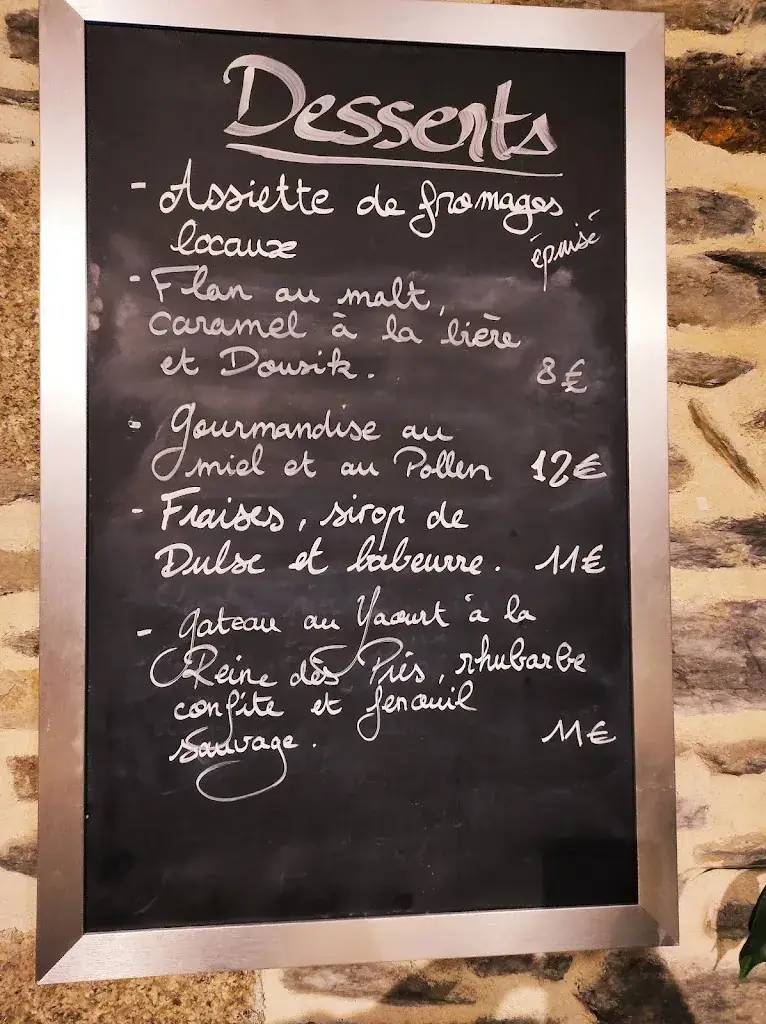 Desserts
- Assiette de fromages
locaux
épuisé
- Flan au malt,
caramel à la bière
et Dousik.
8€
- Gourmandise au
miel et au Pollen 12€
- Fraises, sirop de
Dulse et babeurre. 11€
- gateau au Yaourt à la
Reine des Prés, rhubarbe
confite et fenouil
sauvage. 11€